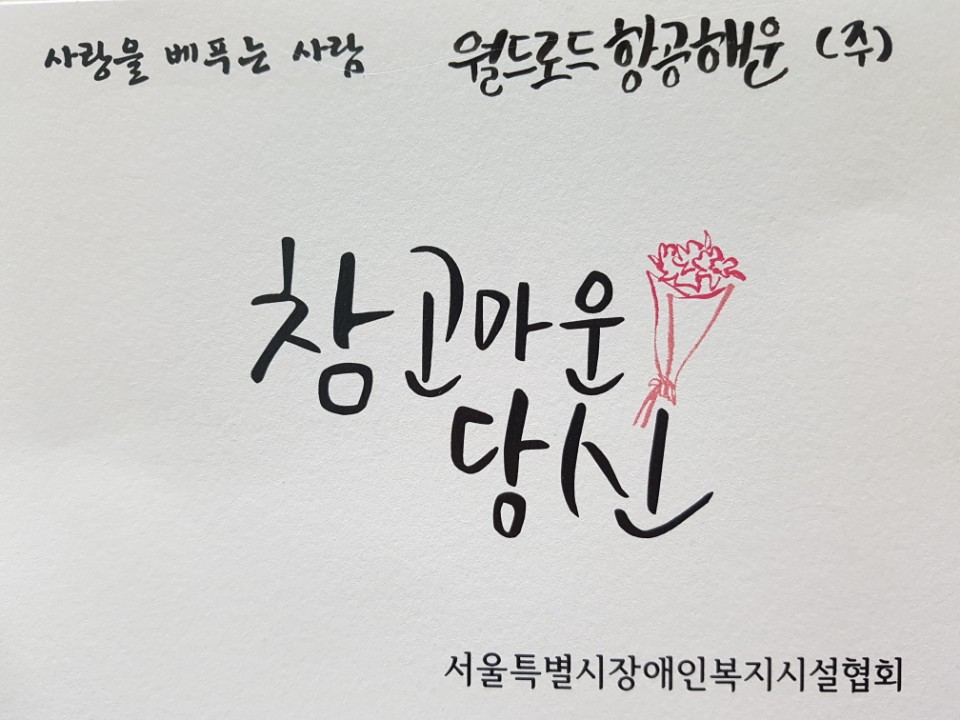 사랑을 베푸는 사람 월드로드항공해운 (주)
참고마운
당신
서울특별시장애인복지시설협회